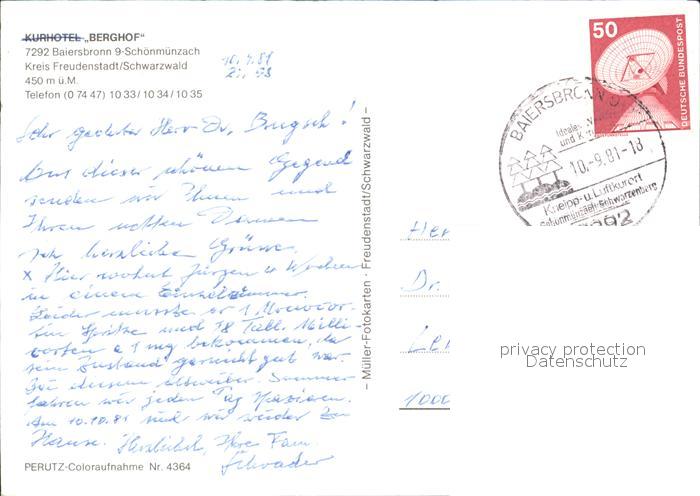 KURHOTEL „BERGHOF"
7292 Baiersbronn 9-Schönmünzach
Kreis Freudenstadt/Schwarzwald
450 m ü.M.
Telefon (0 74 47) 10 33 / 10 34 / 10 35
Sehr geehrter Herr Dr. Brugsch!
Aus dieser schönen Gegend
senden wir Ihnen und
Ihren netten Damen
sehr herzliche Grüsse.
x Hier wohnt Jürgen 4 Wochen
in einem Einzelzimmer.
Leider musste er 1
Spritze und 18 Tabl.
à 1 mg bekommen, da
sein Zustand garnicht gut war.
Bei diesem Sommer
fahren wir jeden Tag
Am 10.10.81 sind wir wieder zu
Hause. Herzlichst, Ihre Fam.
Schrader
PERUTZ-Coloraufnahme Nr. 4364
– Müller-Fotokarten · Freudenstadt/Schwarzwald –
50
DEUTSCHE BUNDESPOST
BAIERSBRONN
Idealer
und
10.-9.81-18
Kneipp- u. Luftkurort
Schönmünzach-Schwarzenberg
7292
Her
Dr.
Le
1000
privacy protection
Datenschutz